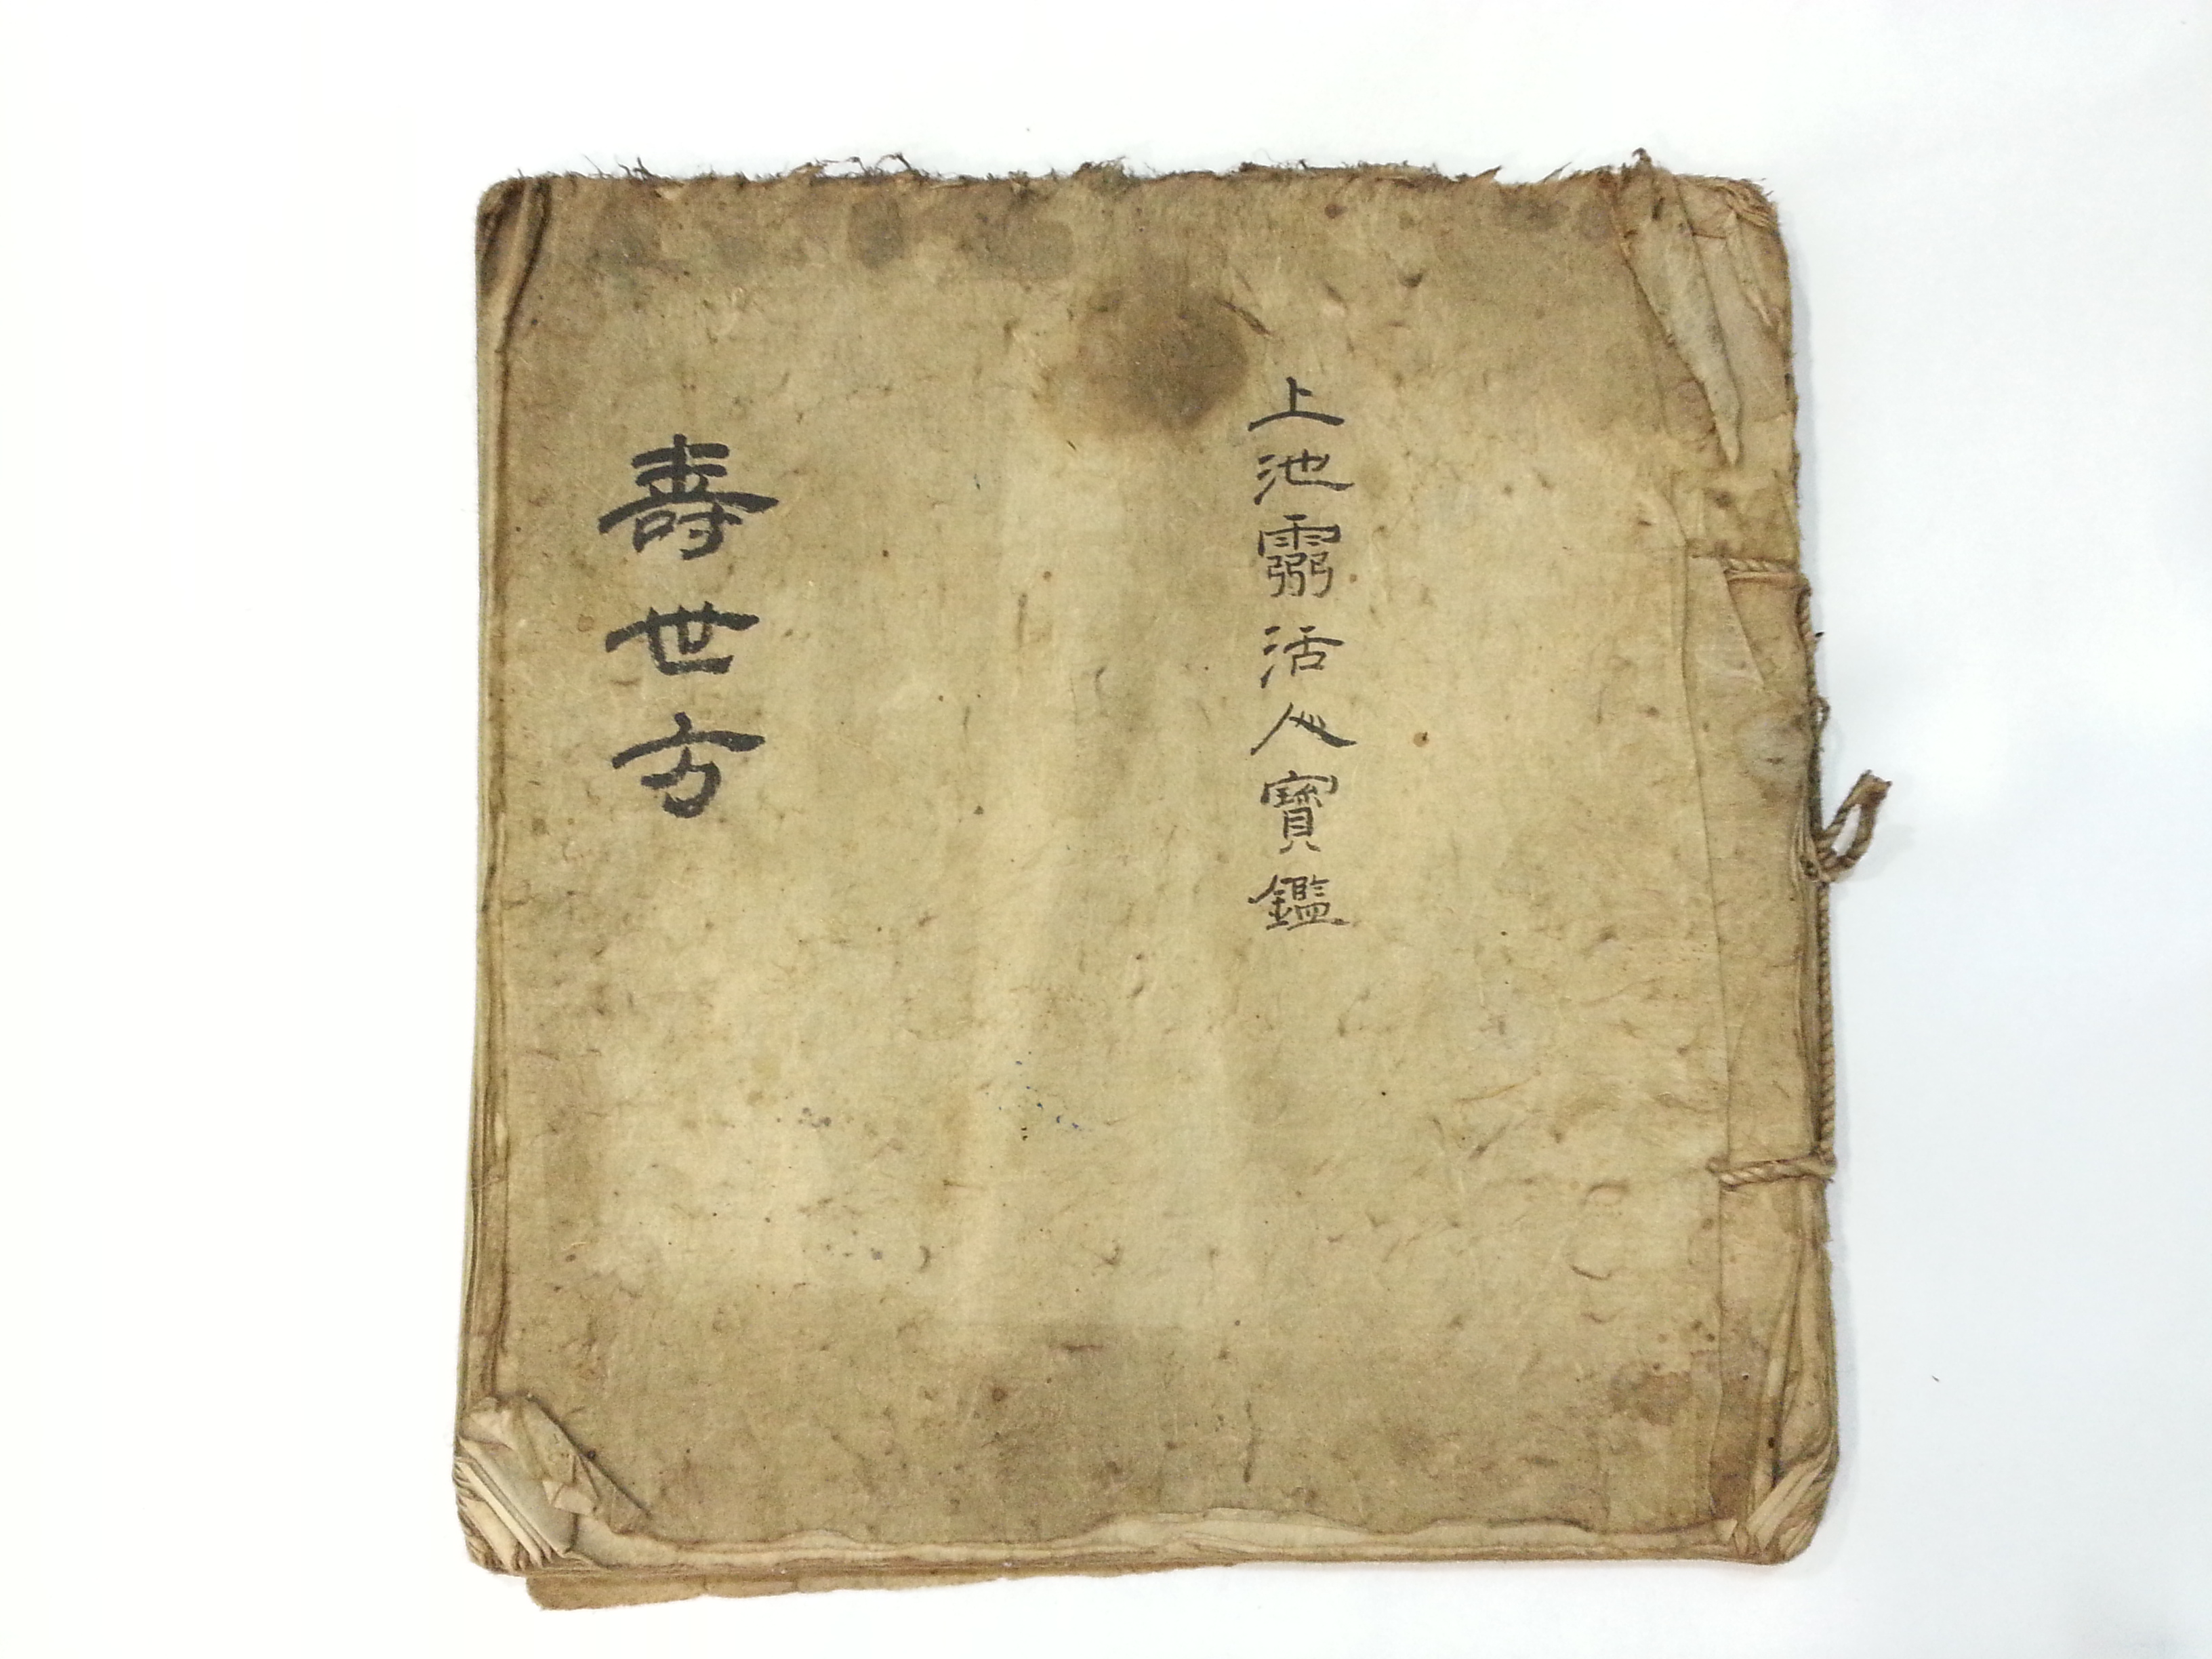 上池活人寶鑑
壽世方